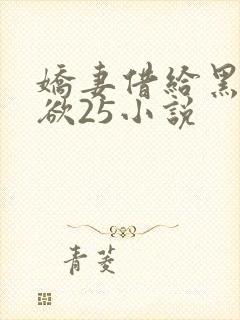 嬌妻借給黑
欲25小說
青菱